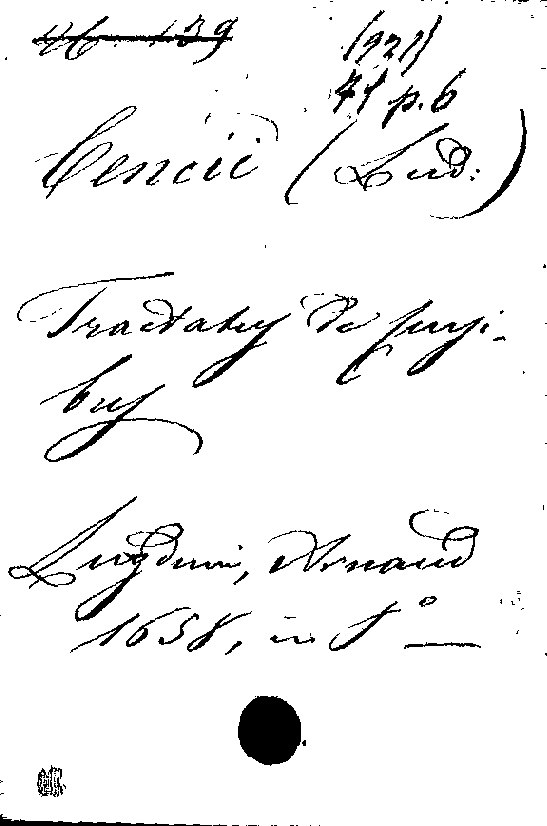 139
p. 6
Cencii (Lud:)
Tractatus de censi-
bus
Lugduni, Arnaud
1658, in f°